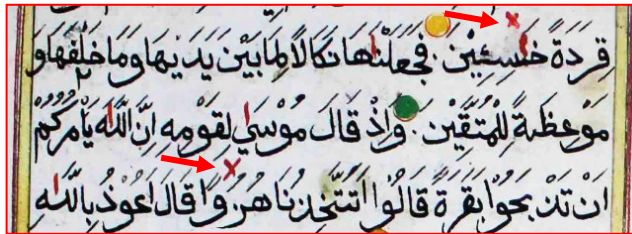 قِرَدَةً خَٰسِئِينَ ۝ فَجَعَلْنَٰهَا نَكَالًا لِمَا بَيْنَ يَدَيْهَا وَمَا خَلْفَهَا وَ
مَوْعِظَةً لِلْمُتَّقِينَ ۝ وَإِذْ قَالَ مُوسَىٰ لِقَوْمِهِ إِنَّ اللَّهَ يَأْمُرُكُمْ
اَنْ تَذْبَحُوْا بَقَرَةً قَالُوْا اَتَتَّخِذُنَا هُزُوًا قَالَ اَعُوْذُ بِاللّٰهِ